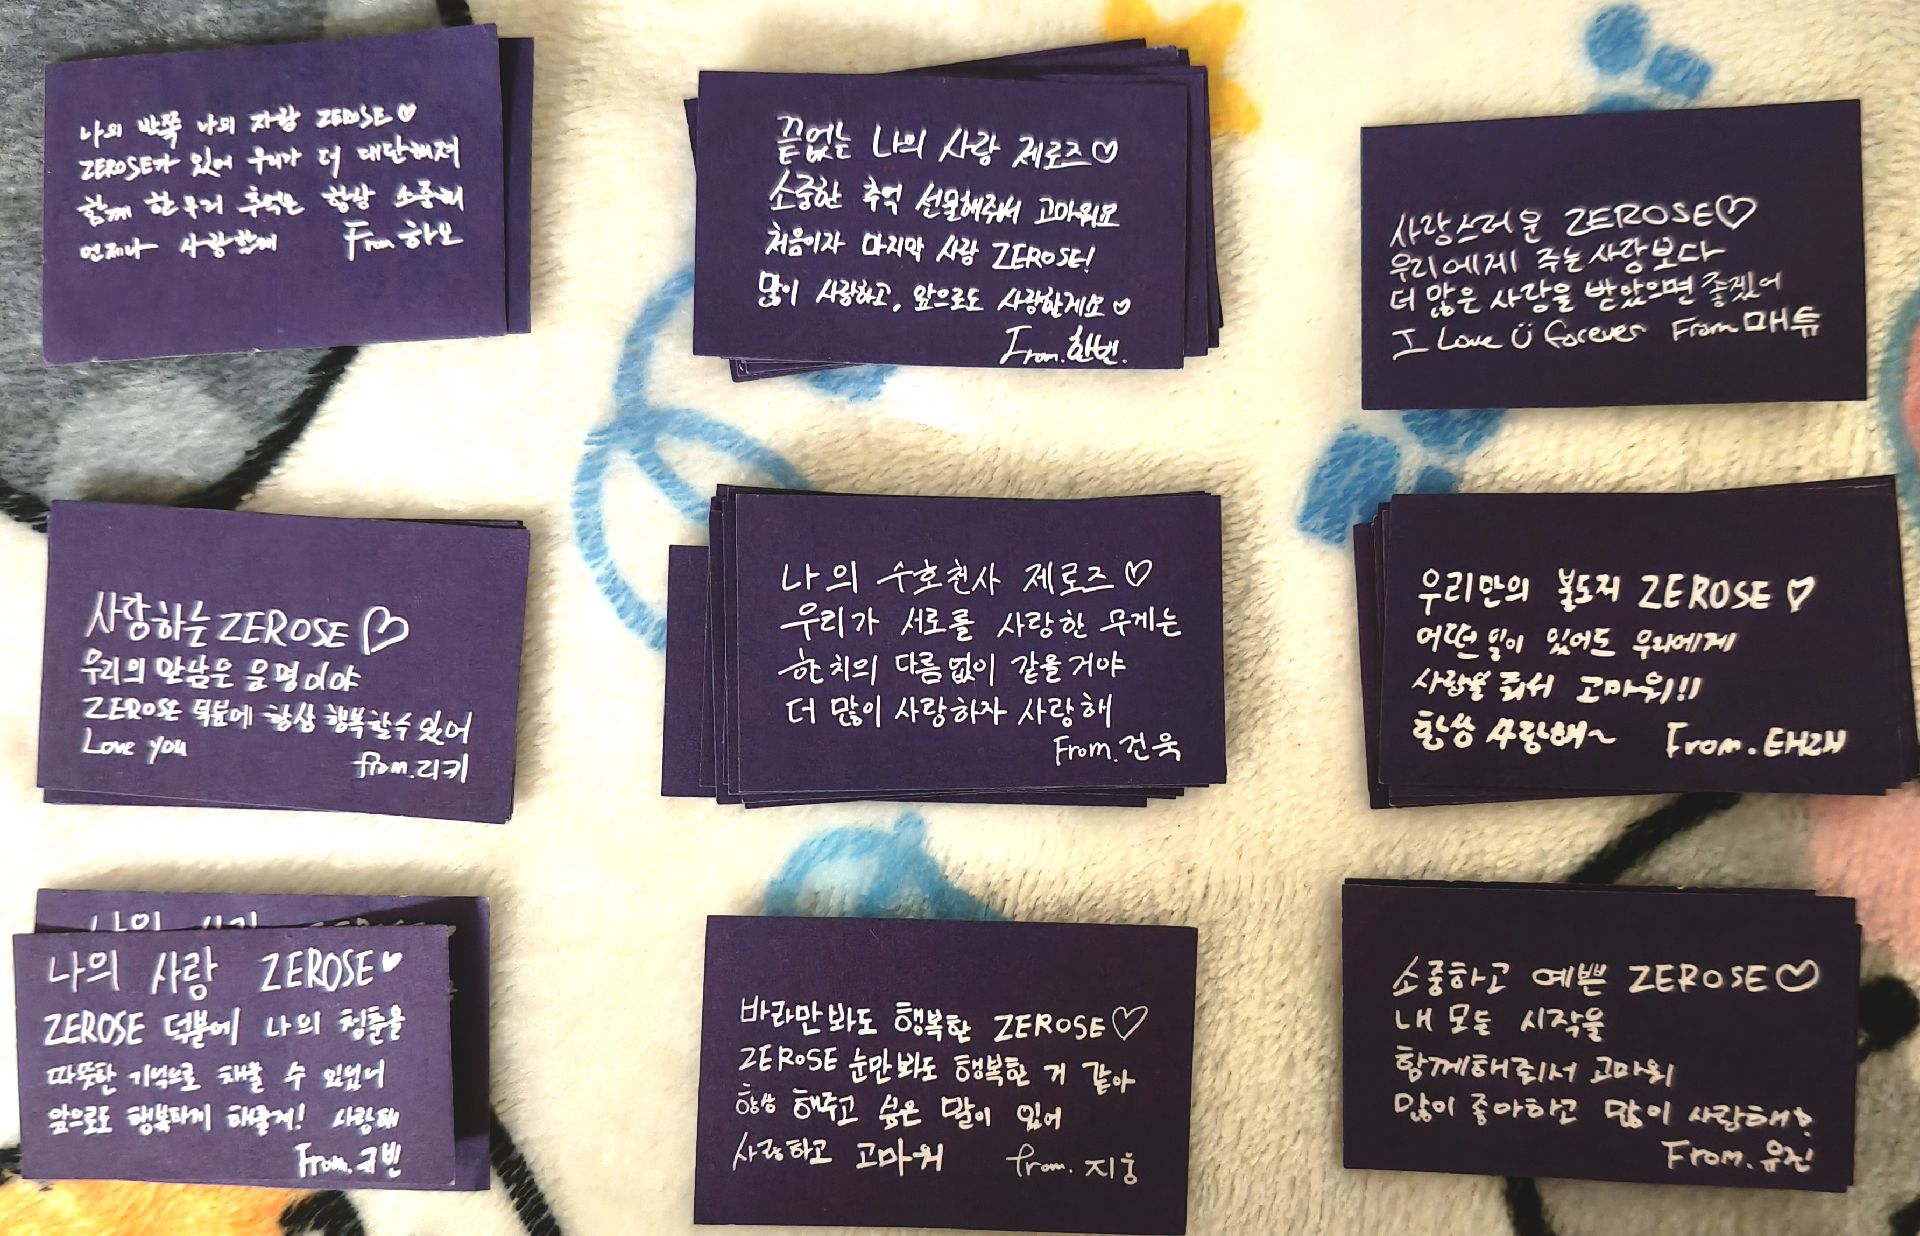 나의 반쪽 나의 자랑 ZEROSE♡
ZEROSE가 있어 우리가 더 대단해져
함께 한 우리 추억은 항상 소중히
언제나 사랑할게 From 하오
끝없는 나의 사랑 제로즈♡
소중한 추억 선물해줘서 고마워요
처음이자 마지막 사랑 ZEROSE!
많이 사랑하고, 앞으로도 사랑할게요♡
From. 한빈.
사랑스러운 ZEROSE♡
우리에게 주는 사랑보다
더 많은 사랑을 받았으면 좋겠어
I Love Ü forever From 매튜
사랑하는 ZEROSE♡
우리의 만남은 운명이야
ZEROSE 덕분에 항상 행복할 수 있어
Love you
from. 리키
나의 수호천사 제로즈♡
우리가 서로를 사랑한 무게는
한 치의 다름없이 같을거야
더 많이 사랑하자 사랑해
From. 건욱
우리만의 불도저 ZEROSE♡
어떤 일이 있어도 우리에게
사랑을 줘서 고마워!!
항상 사랑해~ From. 태래
나의
나의 사랑 ZEROSE♥
ZEROSE 덕분에 나의 청춘을
따뜻한 기억으로 채울 수 있었어
앞으로도 행복하게 해줄게! 사랑해
From. 규빈
바라만봐도 행복한 ZEROSE♡
ZEROSE 눈만봐도 행복한 거 같아
항상 해주고 싶은 말이 있어
사랑하고 고마워 from. 지웅
소중하고 예쁜 ZEROSE♡
내 모든 시작을
함께해줘서 고마워
많이 좋아하고 많이 사랑해
From. 유진